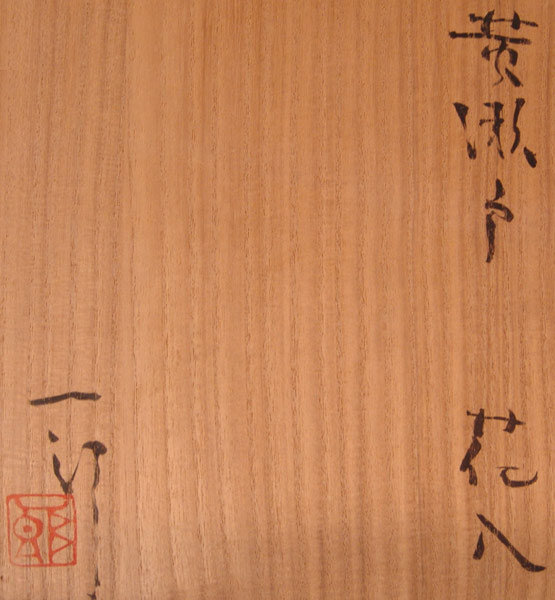 黄瀬戸 花入
一郎